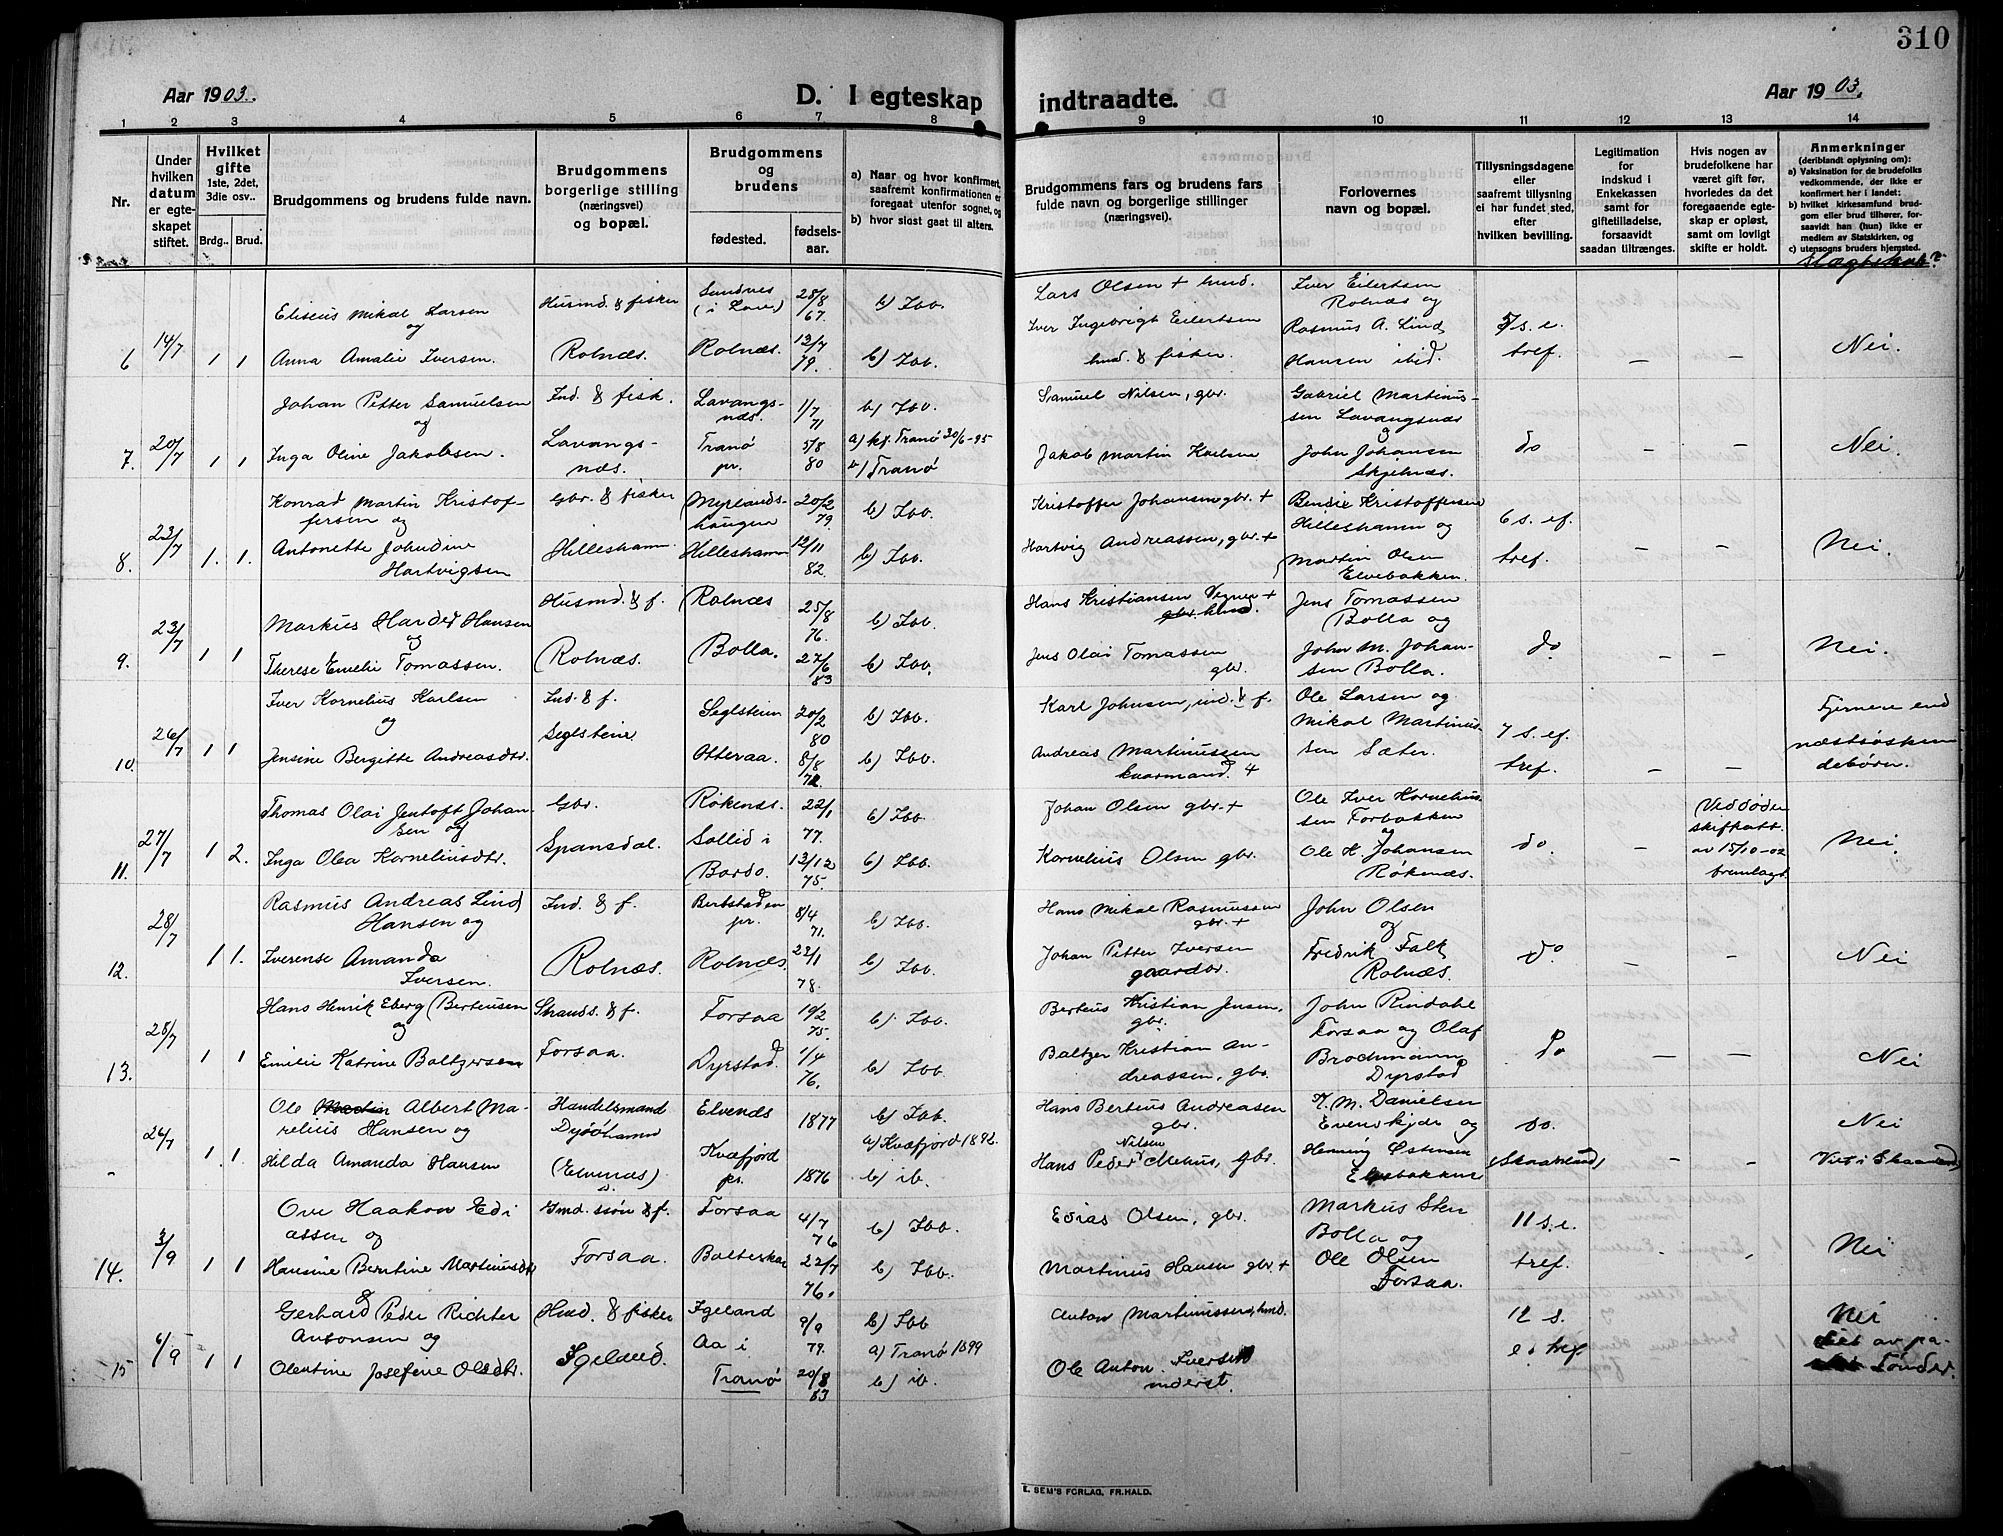 310
Aar 1903.
D. I egteskap
indtraadte.
Aar 1903.
1 2 3 4 5 6 7 8 9 10 11 12 13 14
Nr.
Under hvilken datum er egteskapet stiftet.
Hvilket gifte 1ste, 2det, 3die osv..
Brdg.. Brud.
Brudgommens og brudens fulde navn.
Brudgommens borgerlige stilling (næringsvei) og bopæl.
Brudgommens og brudens
fødested.
fødsels-aar.
a) Naar og hvor konfirmert, saafremt konfirmationen er foregaat utenfor sognet, og
b) hvor sidst gaat til alters.
Brudgommens fars og brudens fars fulde navn og borgerlige stillinger (næringsvei).
Forlovernes navn og bopæl.
Tillysningsdagene eller saafremt tillysning ei har fundet sted, efter hvilken bevilling.
Legitimation for indskud i Enkekassen samt for giftetilladelse, forsaavidt saadan tiltrænges.
Hvis nogen av brudefolkene har været gift før, hvorledes da det foregaaende egteskap er opløst, samt om lovligt skifte er holdt.
Anmerkninger (deriblandt oplysning om):
a) Vaksination for de brudefolks vedkommende, der ikke er konfirmert her i landet:
b) hvilket kirkesamfund brudgom eller brud tilhører, forsaavidt han (hun) ikke er medlem av Statskirken, og
c) utensogns bruders hjemsted.
Slægtskap?
6 14/7 1 1 Eliseus Mikal Larsen
og
Anna Amalie Iversen.
Husmd. & fisker
Rolnæs.
Sandnes (i Lav.)
28/8 67.
b) Ibb.
Rolnæs. 13/7 79. b) Ibb.
Lars Olsen + hmd.
Iver Ingebrigt Eilertsen
hmd. & fisker.
Iver Eilertsen
Rolnæs og
Rasmus A. Lind
Hansen ibid.
5 s. e.
tref.
—
—
Nei.
7. 20/7 1 1 Johan Petter Samuelsen
og
Inga Oline Jakobsen.
Ind. & fisk.
Lavangs-
næs.
Lavangs-
næs.
1/7 71
b) Ibb.
Tranö
pr.
5/8 80
a) kf. Tranö 30/6-95
b) Tranö
Samuel Nilsen, gbr.
Jakob Martin
Gabriel Martinus-
sen Lavangsnæs
og
John Johansen
Skjelnæs.
do
—
—
Nei.
8. 23/7 1. 1. Konrad Martin Kristof-
fersen og
Antonette Johndine
Hartvigsen
Gbr. & fisker
Hilleshamn.
Myrlands-
haugen
20/2 79.
b) Ibb.
Hilleshamn 12/11 82. b) Ibb.
Kristoffer Johansen gbr. +
Hartvig Andreassen, gbr. +
Bendik Kristoffersen
Hilleshamn og
Martin Olsen
Elvebakken.
6 s. ef.
tref.
—
—
Nei.
9. 23/7 1 1 Markus Harder Hansen
og
Therese Emelie Tomassen.
Husmd. & f.
Rolnæs.
Rolnæs
25/8 76.
b) Ibb.
Bolla. 27/6 83 b) Ibb.
Hans Kristiansen +
hmd.
Jens Olai Tomassen
gbr.
Jens Tomassen
Bolla og
John M. Johan-
sen Bolla.
do
—
—
Nei.
10. 26/7 1 1 Iver Kornelius Karlsen
og
Jensine Bergitte Andreasdtr.
Ind. & f.
Seglsteine
Seglstein
20/2 80
b) Ibb.
Ottervaa. 8/8 72. b) Ibb.
Karl Johnsen, ind. & f.
Andreas Martinussen
kvarmand. +
Ole Larsen og
Mikal Martinus-
sen Sæter.
7 s. ef.
tref.
—
—
Fjernere end
næstsøsken
debörn.
11. 27/7 1 2. Thomas Olai Jentoft Johan-
sen og
Inga Olea Kornelinsdtr.
Gbr.
Spansdal.
Røkenæs.
22/1 77.
b) Ibb.
Sollid i
Bardo.
13/12 75.
b) Ibb.
Johan Olsen gbr. +
Kornelius Olsen gbr.
Ole Iver Kornelius-
sen Forbakken
og
Ole H. Johansen
Røkenæs.
do.
—
Ved döden
skifteatt.
av 15/10-02
fremlagt
Nei.
12. 28/7 1 1. Rasmus Andreas Lind
Hansen og
Iverense Amanda
Iversen.
Ind. & f.
Rolnæs.
pr.
8/4 71.
b) Ibb.
Rolnæs. 23/1 78. b) Ibb.
Hans Mikal Rasmussen
gbr. +
Johan Petter Iversen
gaardbr.
John Olsen
og
Fredrik Falk
Rolnæs.
do
—
—
Nei
13. 28/7 1 1 Hans Henrik Eberg Berteusen
og
Emilie Katrine Baltzersen
Strands. & f.
Forsaa.
Forsaa
19/2 75.
b) Ibb.
Dyrstad. 1/4 76. b) Ibb.
Berteus Kristian Jensen,
gbr.
Baltzer Kristian An-
dreassen, gbr.
John Rindahl
Forsaa og Olaf
Brochmann
Dyrstad
do
—
—
Nei
- 26/7 1. 1. Ole Martin Albert Ma-
relius Hansen og
Hilda Amanda Hansen
Handelsmand
(Elvenæs)
Elvenæs
1877
b) Ibb.
Kvæfjord
pr.
1876
a) Kvæfjord 1892.
b) ib.
Hans Berteus Andreasen
gbr.
Nilsen
Hans Peder Mehus, gbr.
K. M. Danielsen
Evenskjær og
Henning Østensen
Elvebakken
do.
(Skaanland)
—
—
Nei
Viet i Skaanland
14. 3/9 1 1 Ove Haakon Edi-
assen og
Hansine Berntine Martinusdtr
Gmd. sön & f.
Forsaa.
Forsaa
4/7 76
b) Ibb.
Balteskar 22/7 76. b) Ibb.
Edias Olsen, gbr.
Martinus Hansen gbr. +
Markus Sten
Bolla og
Ole Olsen
Forsaa.
11 s. e.
tref.
Nei
15 6/9 1 1 Gerhard Peder Richter
Antonsen og
Olentine Josefine Olsdtr.
Hmd. & fisker
Igeland.
Igeland
9/9 79.
b) Ibb
Aa i
Tranö
20/8 83
a) Tranö 1899
b) ib.
Anton Martinussen, hmd.
Ole Anton Iversen
inderst.
12 s.
e. tref
Nei
Viet av pa-
Tönder.
E. SEM'S FORLAG, FR.HALD.